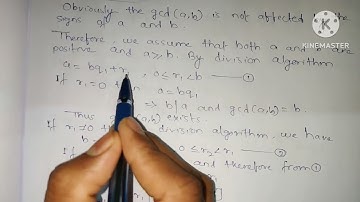 Obviously the gcd (a,b) is not affected
signs of a and b.
KINEMASTER
Therefore, we assume that both a and
positive and a≥b. By division algorithm
a = bq₁+r₁, 0≤r₁<b — ①
If r₁=0 a=bq₁
⇒ b/a and gcd(b,a)= b.
Thus exists.
If r₁≠0 division algorithm, we have
b 0≤r₂<r₁
If and therefore from ①